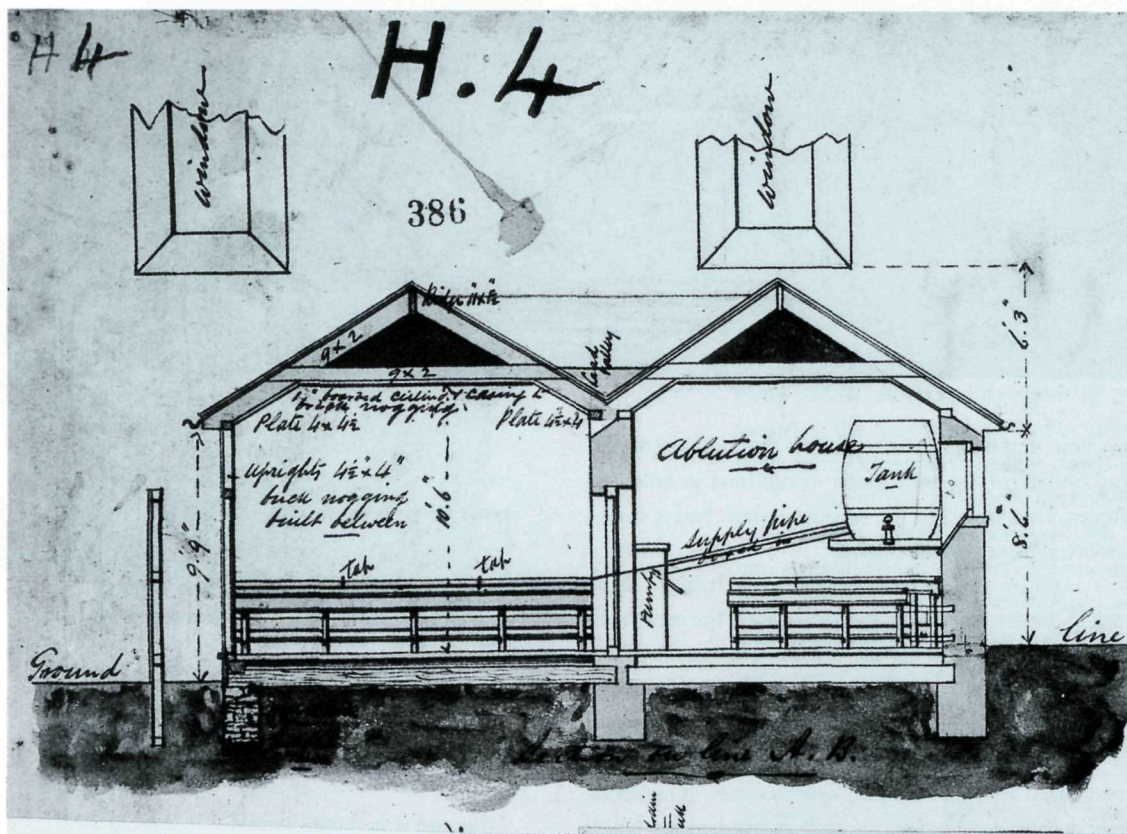 H 4
H.4
window
window
386
Ridge 11 x 1½"
9 x 2
9 x 2
Lead Valley
6'.3"
boarded ceiling & casing to
brick nogging
Plate 4 x 4½
Plate 4½ x 4
Ablution house
Tank
Uprights 4½" x 4"
brick nogging
built between
10'.6"
9'.9"
8'.6"
Supply Pipe
tap
tap
Pump
Ground
line
Section on line A.B.